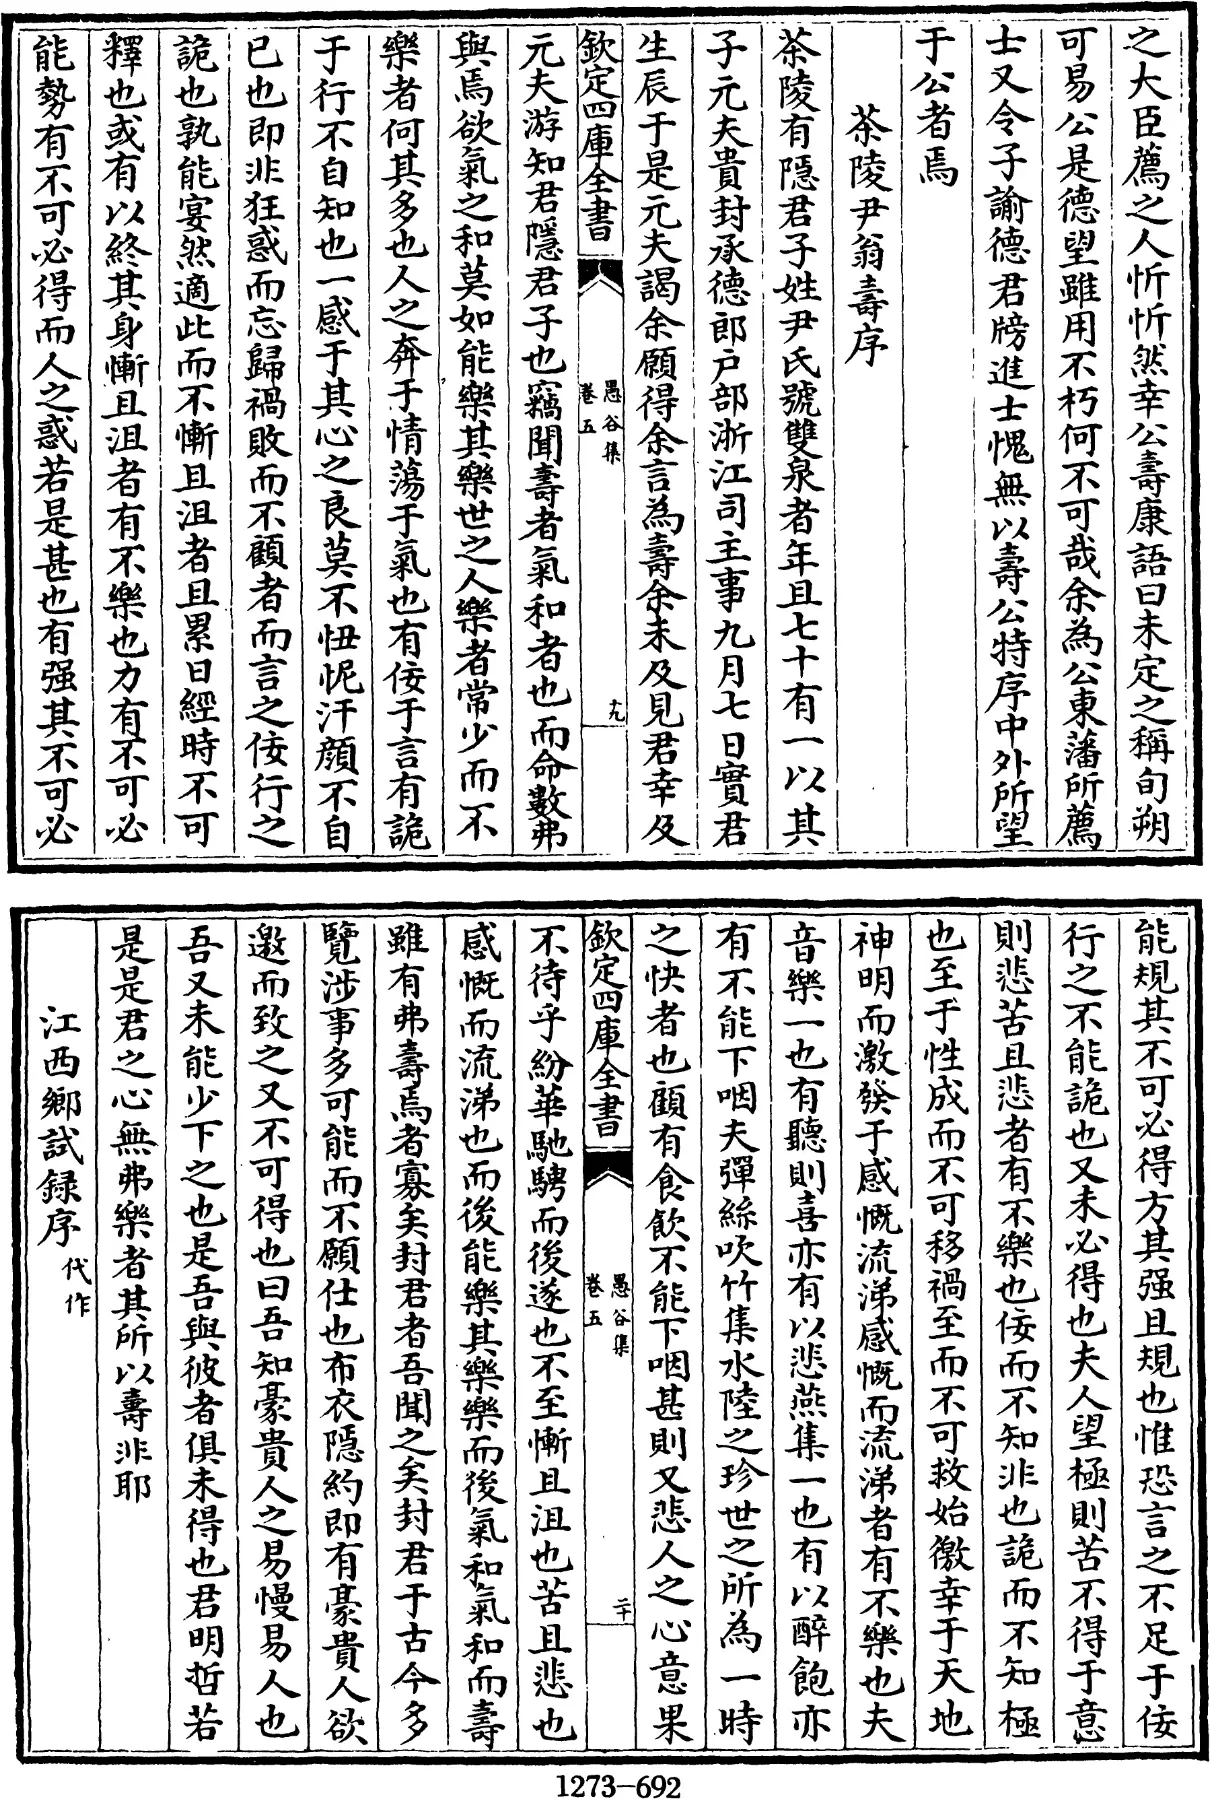 之大臣薦之人忻忻然幸公壽康語曰未定之稱旬朔
可易公是德望雖用不朽何不可哉余為公東藩所薦
士又令子諭德君牓進士愧無以壽公特序中外所望
于公者焉
茶陵尹翁壽序
茶陵有隱君子姓尹氏號雙泉者年且七十有一以其
子元夫貴封承德郎户部浙江司主事九月七日實君
生辰于是元夫謁余願得余言為壽余未及見君幸及
欽定四庫全書
愚谷集
卷五
十九
元夫游知君隱君子也竊聞壽者氣和者也而命數弗
與焉欲氣之和莫如能樂其樂世之人樂者常少而不
樂者何其多也人之奔于情蕩于氣也有佞于言有詭
于行不自知也一感于其心之良莫不忸怩汗顔不自
已也即非狂惑而忘歸禍敗而不顧者而言之佞行之
詭也孰能宴然適此而不慚且沮者且累日經時不可
釋也或有以終其身慚且沮者有不樂也力有不可必
能勢有不可必得而人之惑若是甚也有强其不可必
能規其不可必得方其强且規也惟恐言之不足于佞
行之不能詭也又未必得也夫人望極則苦不得于意
則悲苦且悲者有不樂也佞而不知非也詭而不知極
也至于性成而不可移禍至而不可救始徼幸于天地
神明而激發于感慨流涕感慨而流涕者有不樂也夫
音樂一也有聽則喜亦有以悲燕集一也有以醉飽亦
有不能下咽夫彈絲吹竹集水陸之珍世之所為一時
之快者也顧有食飲不能下咽甚則又悲人之心意果
欽定四庫全書
愚谷集
卷五
二十
不待乎紛華馳騁而後遂也不至慚且沮也苦且悲也
感慨而流涕也而後能樂其樂樂而後氣和氣和而壽
雖有弗壽焉者寡矣封君者吾聞之矣封君于古今多
覽涉事多可能而不願仕也布衣隱約即有豪貴人欲
邀而致之又不可得也曰吾知豪貴人之易慢易人也
吾又未能少下之也是吾與彼者俱未得也君明哲若
是是君之心無弗樂者其所以壽非耶
江西鄉試録序 代作
1273-692